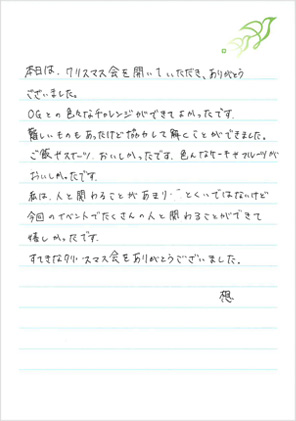 本日は、クリスマス会を開いていただき、ありがとう
ございました。
OGとの色々なチャレンジができてよかったです。
難しいものもあったけど協力して解くことができました。
ご飯やスイーツ、おいしかったです。色んなケーキやフルーツが
おいしかったです。
私は、人と関わることがあまり とくいではないけど
今回のイベントでたくさんの人と関わることができて
嬉しかったです。
すてきなクリスマス会をありがとうございました。
想